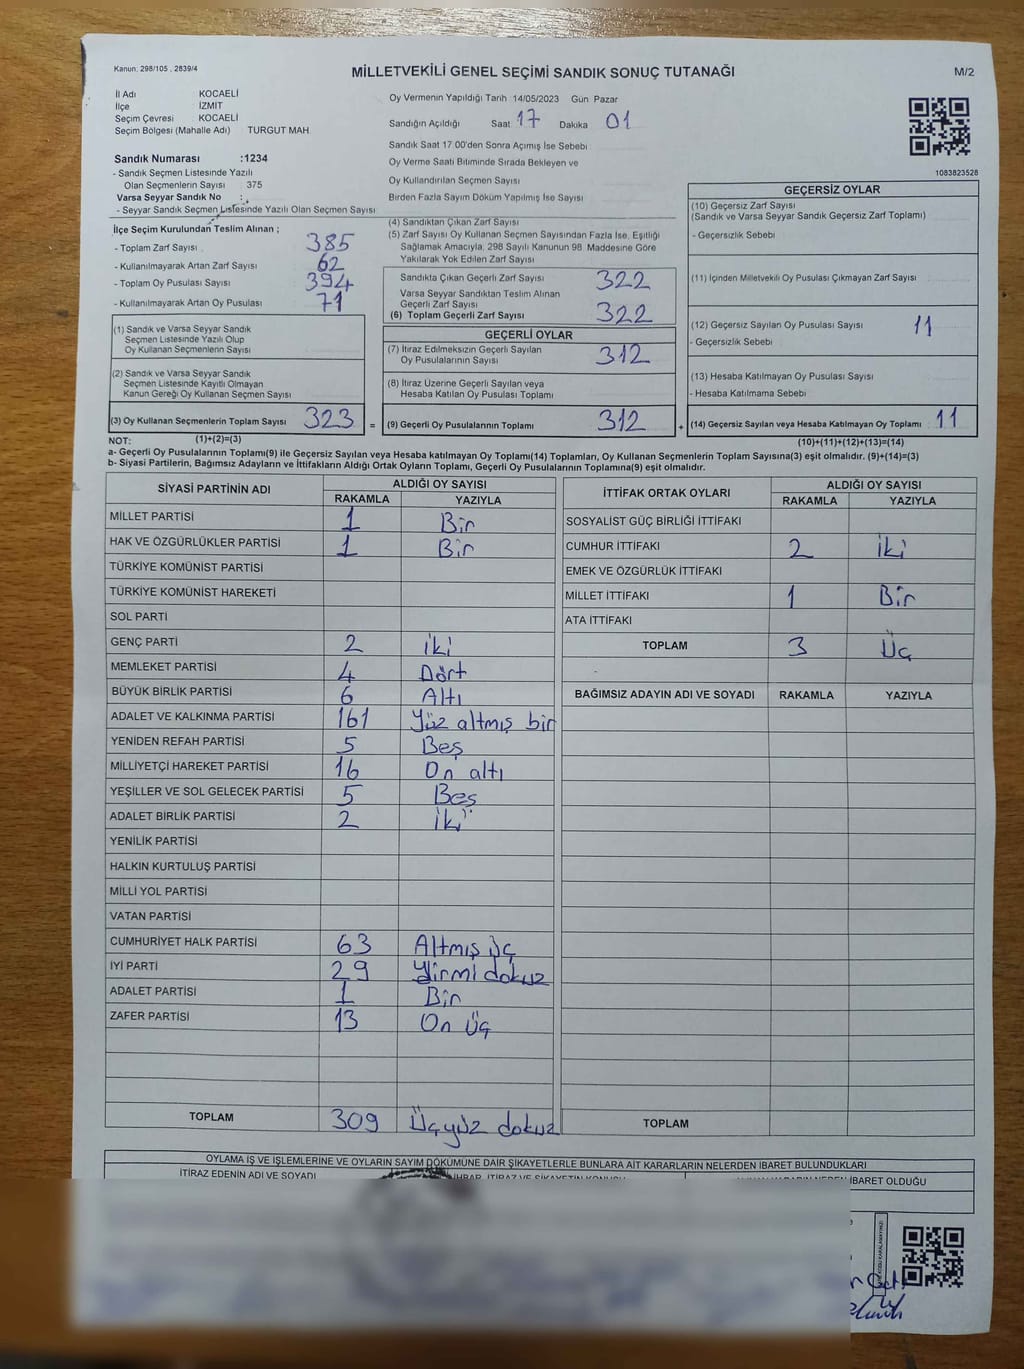 Kanun: 298/105 , 2839/4
MİLLETVEKİLİ GENEL SEÇİMİ SANDIK SONUÇ TUTANAĞI
M/2
İl Adı KOCAELİ
İlçe İZMİT
Seçim Çevresi KOCAELİ
Seçim Bölgesi (Mahalle Adı) TURGUT MAH.
Sandık Numarası :1234
- Sandık Seçmen Listesinde Yazılı
Olan Seçmenlerin Sayısı 375
Varsa Seyyar Sandık No :
- Seyyar Sandık Seçmen Listesinde Yazılı Olan Seçmen Sayısı
Oy Vermenin Yapıldığı Tarih 14/05/2023 Gün Pazar
Sandığın Açıldığı Saat 17 Dakika 01
Sandık Saat 17 00'den Sonra Açımış İse Sebebi
Oy Verme Saati Bitiminde Sırada Bekleyen ve
Oy Kullandırılan Seçmen Sayısı
Birden Fazla Sayım Döküm Yapılmış İse Sayısı
1083823528
İlçe Seçim Kurulundan Teslim Alınan ;
- Toplam Zarf Sayısı 385
- Kullanılmayarak Artan Zarf Sayısı 62
- Toplam Oy Pusulası Sayısı 394
- Kullanılmayarak Artan Oy Pusulası 71
(1) Sandık ve Varsa Seyyar Sandık
Seçmen Listesinde Yazılı Olup
Oy Kullanan Seçmenlerin Sayısı
(2) Sandık ve Varsa Seyyar Sandık
Seçmen Listesinde Kayıtlı Olmayan
Kanun Gereği Oy Kullanan Seçmen Sayısı
(3) Oy Kullanan Seçmenlerin Toplam Sayısı 323 =
(1)+(2)=(3)
(4) Sandıktan Çıkan Zarf Sayısı
(5) Zarf Sayısı Oy Kullanan Seçmen Sayısından Fazla İse, Eşitliği
Sağlamak Amacıyla, 298 Sayılı Kanunun 98. Maddesine Göre
Yakılarak Yok Edilen Zarf Sayısı
Sandıkta Çıkan Geçerli Zarf Sayısı 322
Varsa Seyyar Sandıktan Teslim Alınan
Geçerli Zarf Sayısı
(6) Toplam Geçerli Zarf Sayısı 322
GEÇERLİ OYLAR
(7) İtiraz Edilmeksizin Geçerli Sayılan
Oy Pusulalarının Sayısı 312
(8) İtiraz Üzerine Geçerli Sayılan veya
Hesaba Katılan Oy Pusulası Toplamı
(9) Geçerli Oy Pusulalarının Toplamı 312 +
GEÇERSİZ OYLAR
(10) Geçersiz Zarf Sayısı
(Sandık ve Varsa Seyyar Sandık Geçersiz Zarf Toplamı)
- Geçersizlik Sebebi
(11) İçinden Milletvekili Oy Pusulası Çıkmayan Zarf Sayısı
(12) Geçersiz Sayılan Oy Pusulası Sayısı 11
- Geçersizlik Sebebi
(13) Hesaba Katılmayan Oy Pusulası Sayısı
- Hesaba Katılmama Sebebi
(14) Geçersiz Sayılan veya Hesaba Katılmayan Oy Toplamı 11
(10)+(11)+(12)+(13)=(14)
NOT:
a- Geçerli Oy Pusulasının Toplamı(9) ile Geçersiz Sayılan veya Hesaba katılmayan Oy Toplamı(14) Toplamları, Oy Kullanan Seçmenlerin Toplam Sayısına(3) eşit olmalıdır. (9)+(14)=(3)
b- Siyasi Partilerin, Bağımsız Adayların ve İttifakların Aldığı Ortak Oyların Toplamı, Geçerli Oy Pusulalarının Toplamına(9) eşit olmalıdır.
SİYASİ PARTİNİN ADI ALDIĞI OY SAYISI
RAKAMLA YAZIYLA
MİLLET PARTİSİ 1 Bir
HAK VE ÖZGÜRLÜKLER PARTİSİ 1 Bir
TÜRKİYE KOMÜNİST PARTİSİ
TÜRKİYE KOMÜNİST HAREKETİ
SOL PARTİ
GENÇ PARTİ 2 iki
MEMLEKET PARTİSİ 4 Dört
BÜYÜK BİRLİK PARTİSİ 6 Altı
ADALET VE KALKINMA PARTİSİ 161 Yüz altmış bir
YENİDEN REFAH PARTİSİ 5 Beş
MİLLİYETÇİ HAREKET PARTİSİ 16 On altı
YEŞİLLER VE SOL GELECEK PARTİSİ 5 Beş
ADALET BİRLİK PARTİSİ 2 iki
YENİLİK PARTİSİ
HALKIN KURTULUŞ PARTİSİ
MİLLİ YOL PARTİSİ
VATAN PARTİSİ
CUMHURİYET HALK PARTİSİ 63 Altmış üç
İYİ PARTİ 29 Yirmi dokuz
ADALET PARTİSİ 1 Bir
ZAFER PARTİSİ 13 On üç
TOPLAM 309 Üçyüz dokuz
İTTİFAK ORTAK OYLARI ALDIĞI OY SAYISI
RAKAMLA YAZIYLA
SOSYALİST GÜÇ BİRLİĞİ İTTİFAKI
CUMHUR İTTİFAKI 2 iki
EMEK VE ÖZGÜRLÜK İTTİFAKI
MİLLET İTTİFAKI 1 Bir
ATA İTTİFAKI
TOPLAM 3 Üç
BAĞIMSIZ ADAYIN ADI VE SOYADI RAKAMLA YAZIYLA
TOPLAM
OYLAMA İŞ VE İŞLEMLERİNE VE OYLARIN SAYIM DÖKÜMÜNE DAİR ŞİKAYETLERLE BUNLARA AİT KARARLARIN NELERDEN İBARET BULUNDUKLARI
İTİRAZ EDENİN ADI VE SOYADI
İBARET OLDUĞU